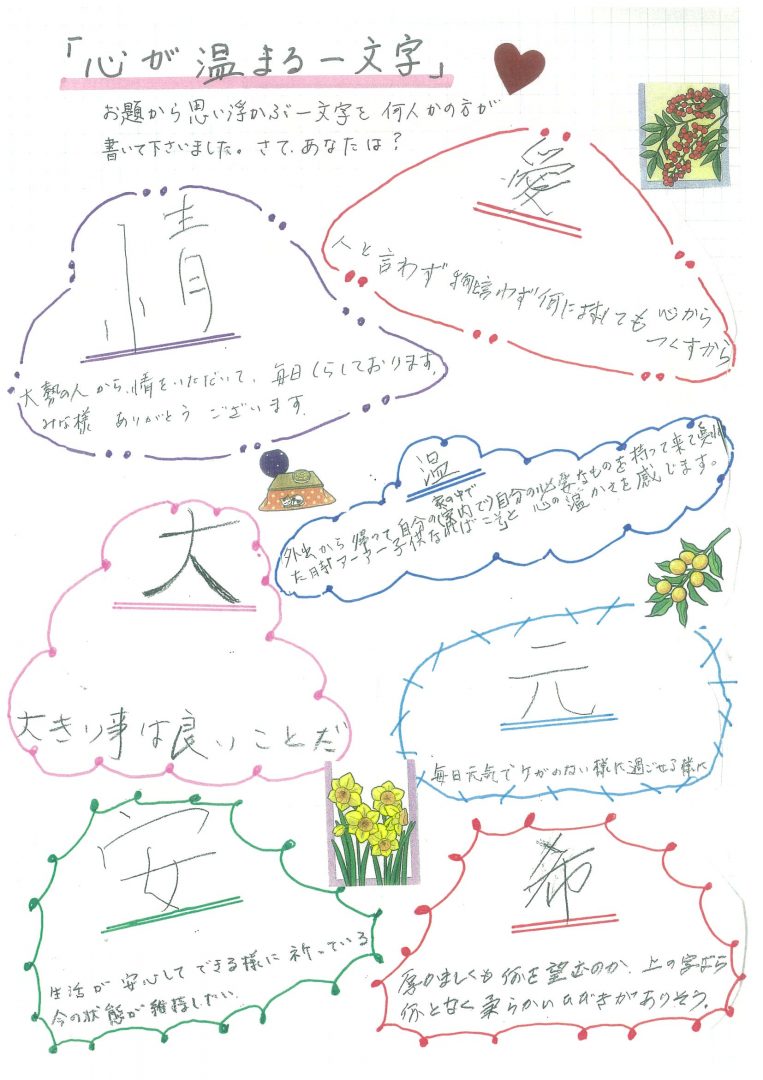 「心が温まる一文字」
お題から思い浮かぶ一文字を何人かの方が
書いて下さいました。さて、あなたは?
愛
人と言わず物言わず何に対しても心から
つくすから
情
大勢の人から、情をいただいて、毎日くらしております。
みな様 ありがとう ございます。
温
家の中で
外出から帰って自分の(室内で)自分の必要なものを持って来て
た時 子供なればこそと 心の温かさを感じます。
大
大きい事は良いことだ
元
毎日元気でケガのない様に過ごせる様に
安
生活が安心してできる様に祈っている
今の状態が維持したい。
希
厚かましくも何を望むのか、上の字なら
何となく柔らかいひびきがありそう。